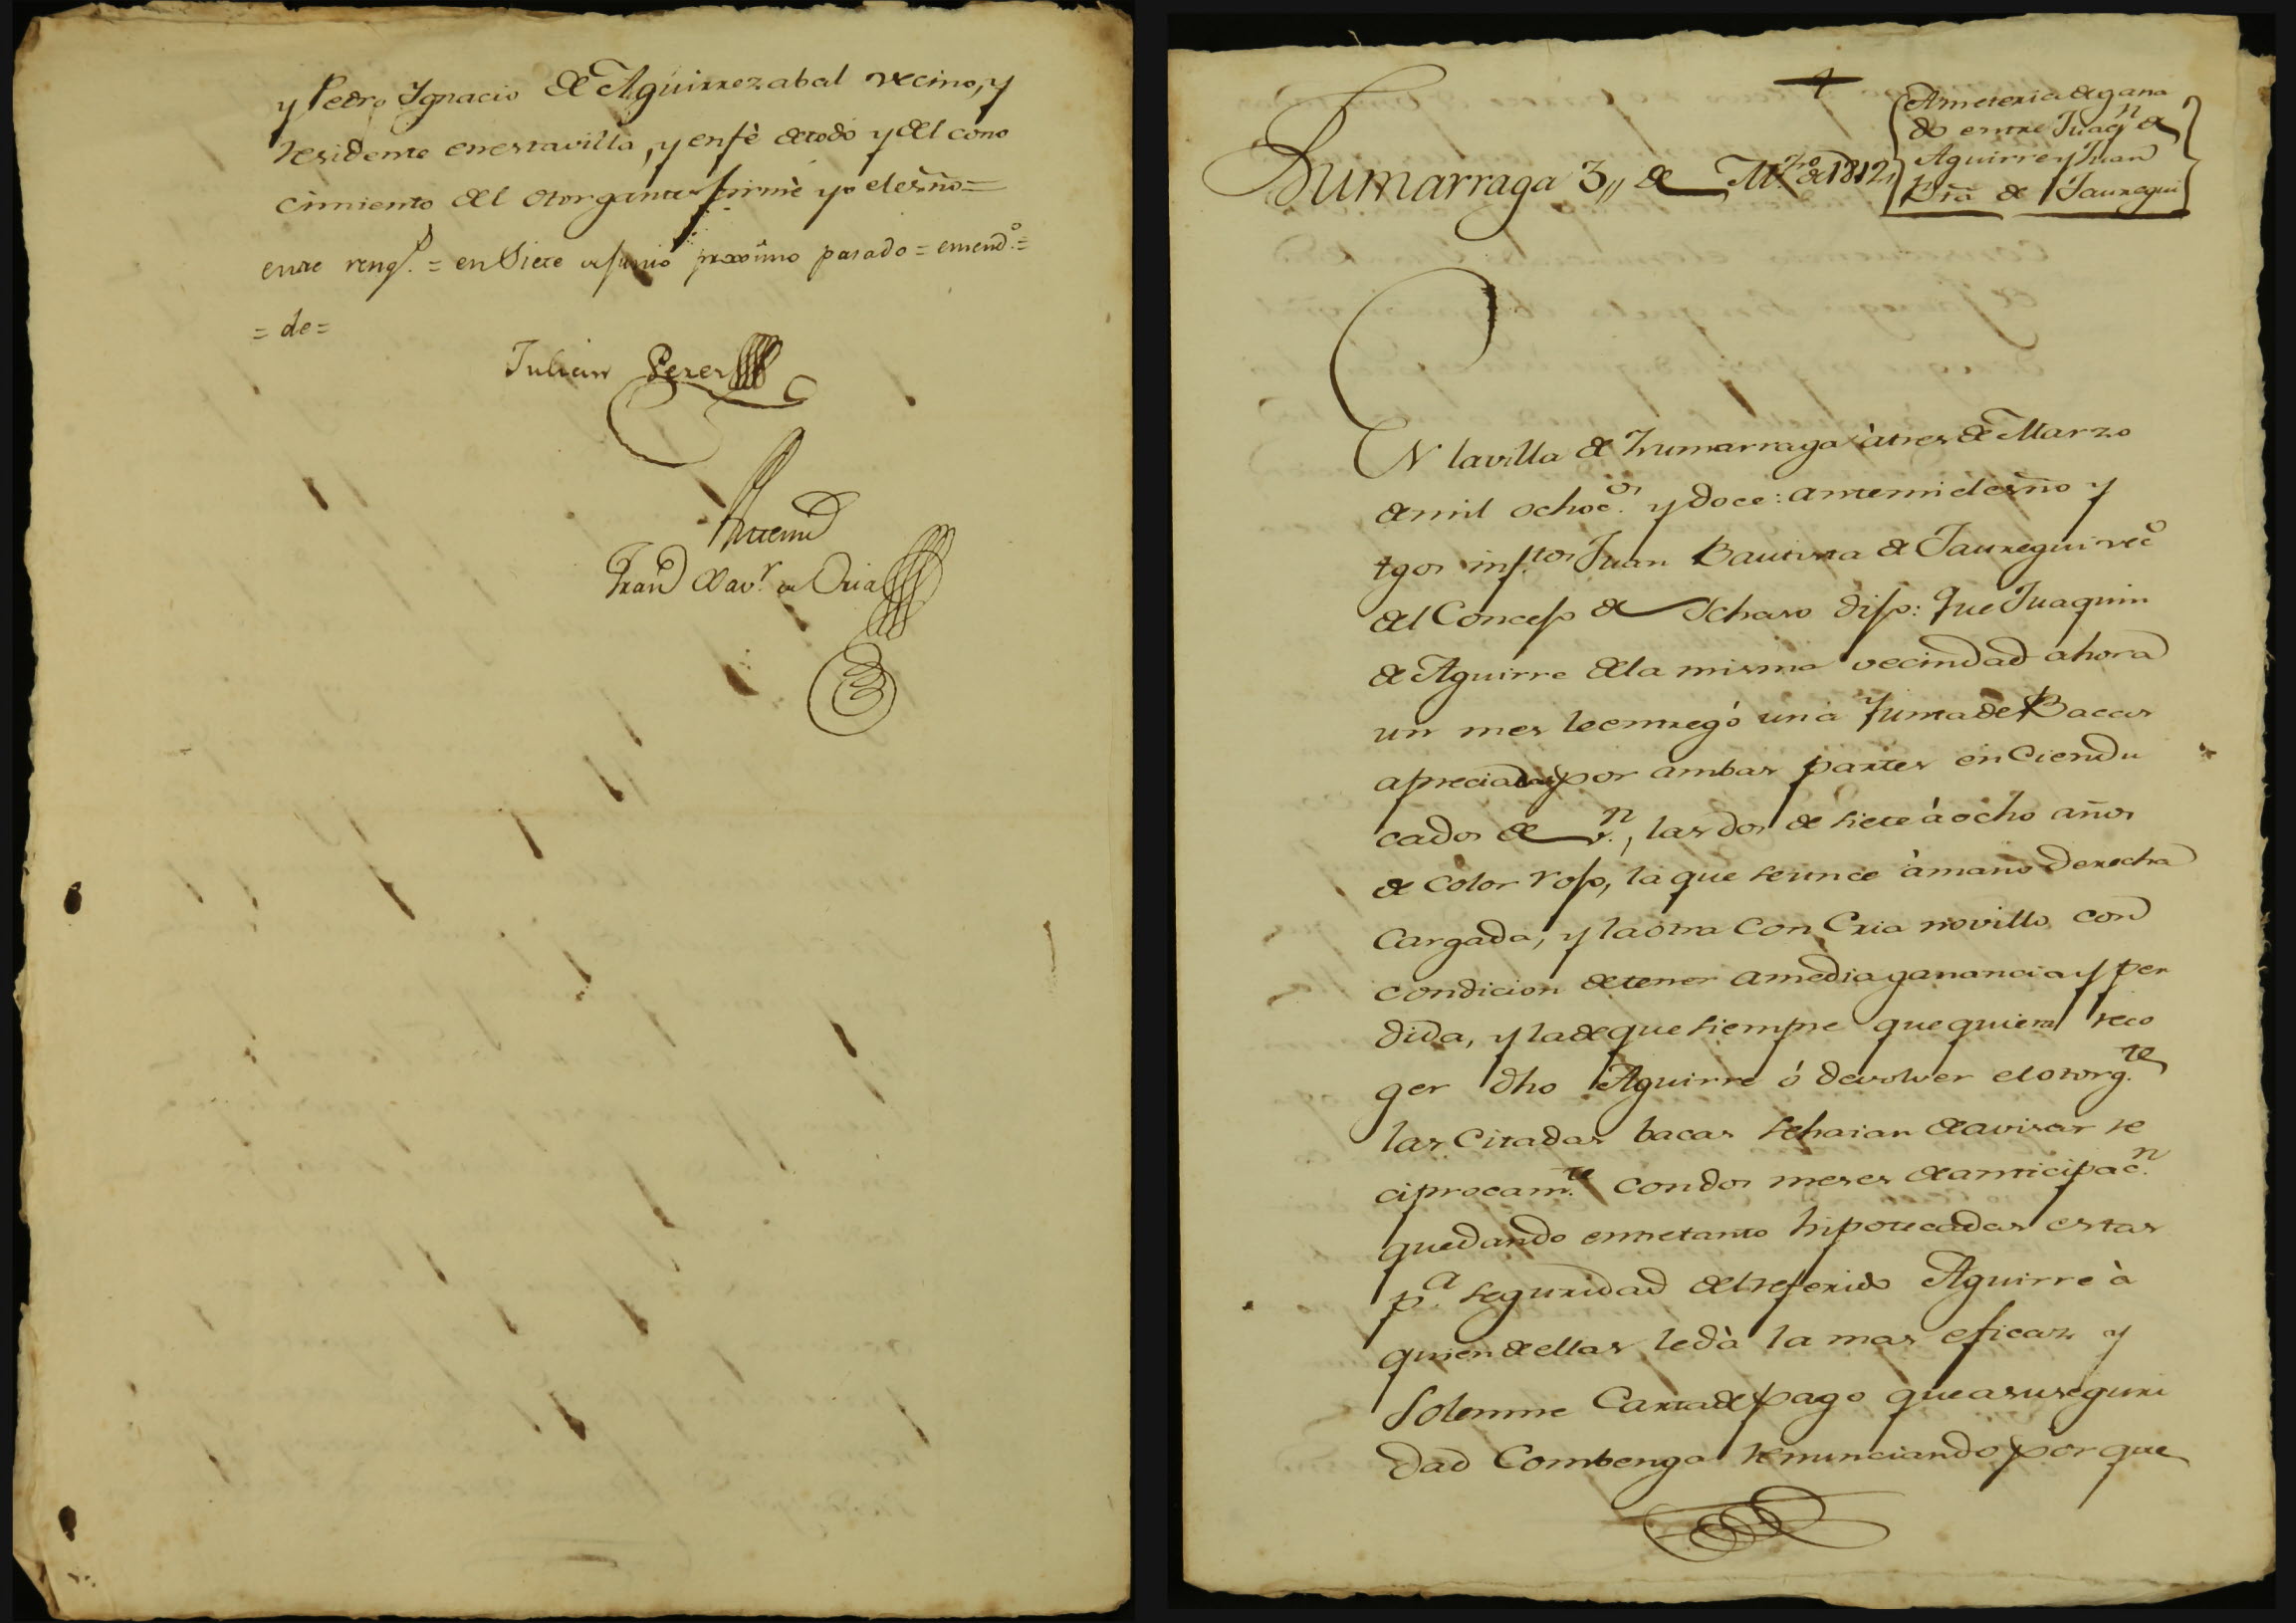 y Pedro Ygnacio de Aguirrezabal vecino, y
residente enestavilla, y enfè detodo y del cono
cimiento del otorgante firmè yo elesño=
entre rengs. = en Siete de Junio proximo pasado = emendº. =
= de =
Julian Perez
Antemi
Franco Xavr. de Oria
Ameteria de gana
do entre Juaqn de
Aguirre y Juan
Bta de Jauregui
Zumarraga 3,, de Mzo de 1812,,
EN lavilla de Zumarraga à tres de Marzo
demil ochocos. y doce: antemi elesño y
tgos insftos Juan Bautista de Jauregui veco
del Concejo de Ichaso dijo: Que Juaquin
de Aguirre dela misma vecindad ahora
un mes leentregó una Yunta de Bacas
apreciadas por ambas partes en Ciendu
cados de vn., las dos de siete à ocho años
de color rojo, la que seunce àmano derecha
Cargada, y laotra Con Cria novillo con
condicion detener amedia ganancia y per
dida, y la de que siempre que quiera reco
ger dho Aguirre ó devolver elotorgte.
las Citadas bacas sehaian deavisar re
ciprocamte. condos meses deanticipacn.
quedando entretanto hipotecadas estas
pa. seguridad delreferido Aguirre à
quien deellas ledà la mas eficaz y
Solemne Carta de pago que a su seguri
dad Combenga renunciando por que